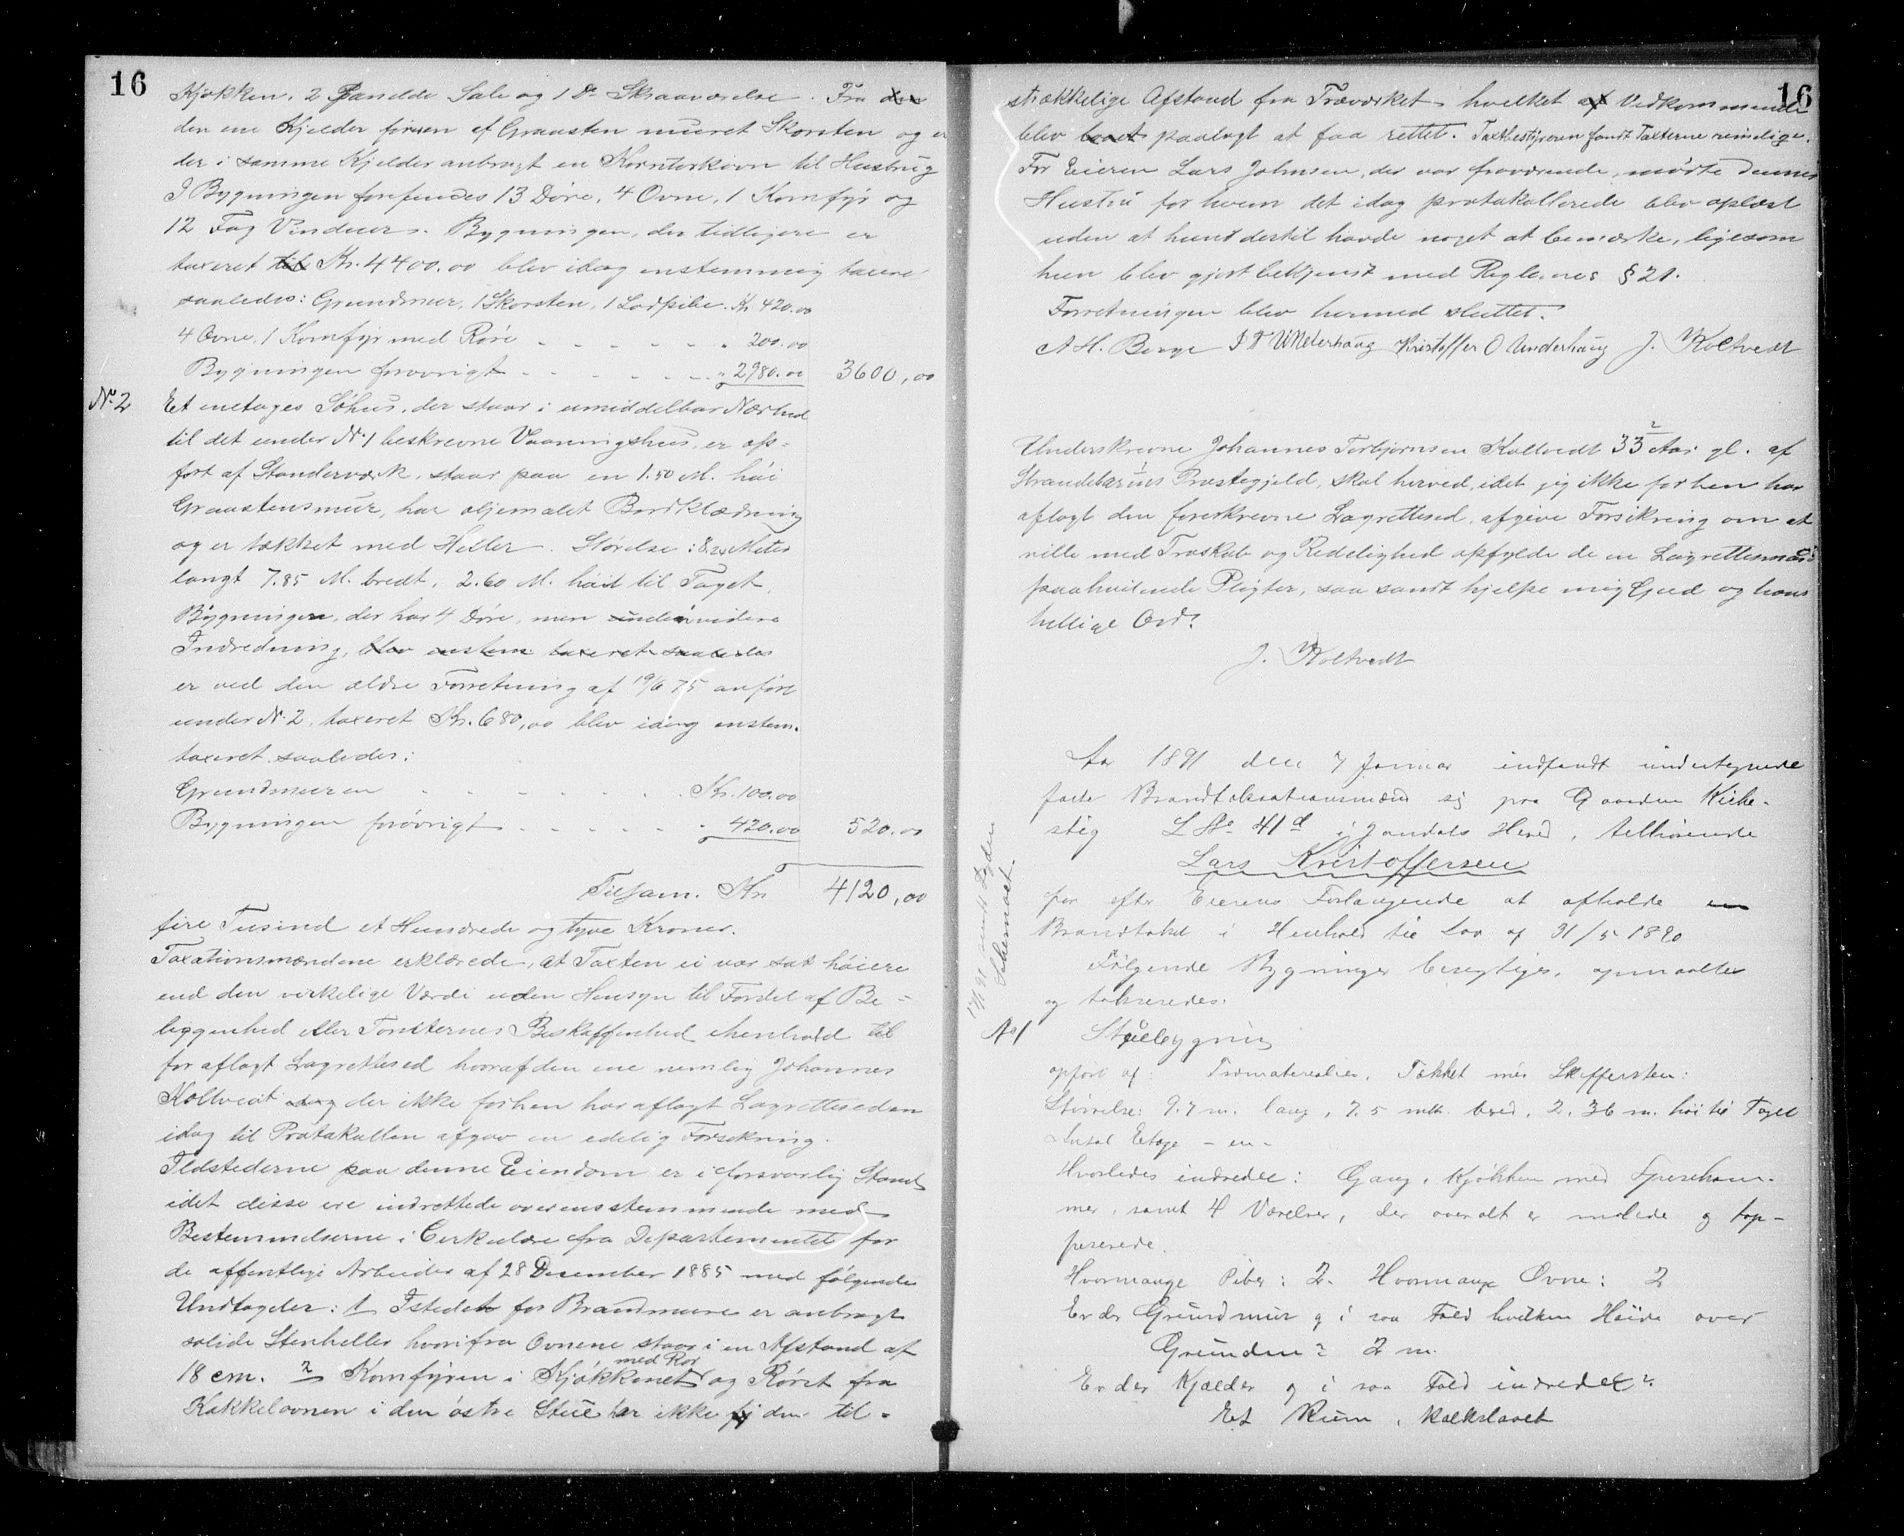 16
Kjøkken, 2 Panelede Sale og 1 Do Skraaværelse. Fra den
den ene Kjelder  af Graasten muret Skorsten og er
der i samme Kjelder anbragt en Korntørkeovn til Husbrug
I Bygningen forefindes 13 Døre, 4 Ovne, 1 Komfyr og
12 Fag Vinduer. Bygningen, der tidligere er
taxeret til Kr. 4400.00 blev idag enstemmig taxeret
saaledes: Grundmur, 1 Skorsten, 1 Lodpibe. Kr. 420.00
4 Ovne, 1 Komfyr med Røre - - - - - - " 200.00
Bygningen forøvrigt - - - - - - " 2980.00 3600,00
No 2 Et enetages Søhus, der staar i umiddelbar Nærhed
til det under No 1 beskrevne Vaaningshus, er op-
ført af Standerværk, staar paa en 1.50 M. høi
Graastensmur, har oljemalet Bordklædning
og er tækket med Heller. Størelse: 8.20 Meter
langt 7.85 M. bredt, 2.60 M. høit til Taget.
Bygningen, der har 4 Døre, men uden videre
Indredning, blev enstem taxeret saaledes
er ved den ældre Forretning af 19/6 75 anført
under No 2, taxeret Kr. 680,00 blev idag enstem.
taxeret saaledes:
Grundmuren - - - - - - - Kr. 100.00
Bygningen forøvrigt - - - - - - " 420.00 520.00
Tilsam. Kr. 4120,00
fire Tusind et Hundrede og tyve Kroner.
Taxationsmændene erklærede, at Taxten ei var sat høiere
end den virkelige Værdi uden Hensyn til Fordel af Be-
liggenhed eller Tomternes Beskaffenhed i henhold til
før aflagt Lagrettesed hvoraf den ene nemlig Johannes
Koltvedt  der ikke forhen har aflagt Lagretteseden
idag til Protokollen afgav en edelig Forsikring.
Ildstederne paa denne Eiendom er i forsvarlig Stand
idet disse ere indrettede overensstemmende med
Bestemmelserne i Cirkulære fra Departementet for
de offentlige Arbeider af 28 Desember 1885 med følgende
Undtagelser: 1 Istedet for Brandmure er anbragt
solide Stenheller hvorifra Ovnene staar i en Afstand af
18 cm. 2 Komfyren i Kjøkkenet med Rør og Røret fra
Kakkelovnen i den østre Stue har ikke fj den til-
16
strækkelige Afstand fra Træværket hvilket af Vedkommende
blev  paalagt at faa rettet. Taxtbestyreren fandt Taxterne rimelige.
For Eieren Lars Johnsen, der var fraværende, mødte dennes
Hustru for hvem det idag protokollerede blev oplæst
uden at hun dertil havde noget at bemærke, ligesom
hun blev gjort bekjendt med Reglernes § 21.
Forretningen blev hermed sluttet.
A H. Berge J T Underhaug Kristoffer O Underhaug J. Koltvedt
Underskrevne Johannes Torbjørnsen Koltvedt 33 2 Aar gl. af
Strandebarms Præstegjeld, skal herved, idet jeg ikke forhen har
aflagt den foreskrevne Lagrettesed, afgive Forsikring om at
ville med Troskab og Redelighed opfylde de en Lagrettesmænd
paahvilende Pligter, saa sandt hjelpe mig Gud og hans
hellige Ord.
J. Koltvedt
Aar 1891 den 7 Januar indfandt undertegnede
faste Brandtaksationsmænd sig paa Gaarden Kirke-
stig L No 41 d i Jondals Hered, tilhørende
Lars Kristoffersen
for efter Eierens Forlangende at afholde en
Brandtakst i Henhold til Lov af 31/5 1890
Følgende Bygninger besigtiges, opmaaltes
og takseredes.
17/1 91 sendt Lyder
Schemaet.
No 1 Stuebygning
opført af: Træmaterialier. Tækket med Skiffersten:
Størrelse: 9.7 m. lang, 7.5 mtr. bred, 2.36 m. høi til Taget
Antal Etage - en -
Hvorledes indredet: Gang, Kjøkken med Spisekam-
mer, samt 4 Værelser, der overalt er malede og tap-
perserede.
Hvormange Piber: 2. Hvormange Ovne: 2
Er der Grundmur og i saa Fald hvilken Høide over
Grunden? 2 m.
Er der Kjælder og i saa Fald indredet?
Et Rum, kalkslaaet